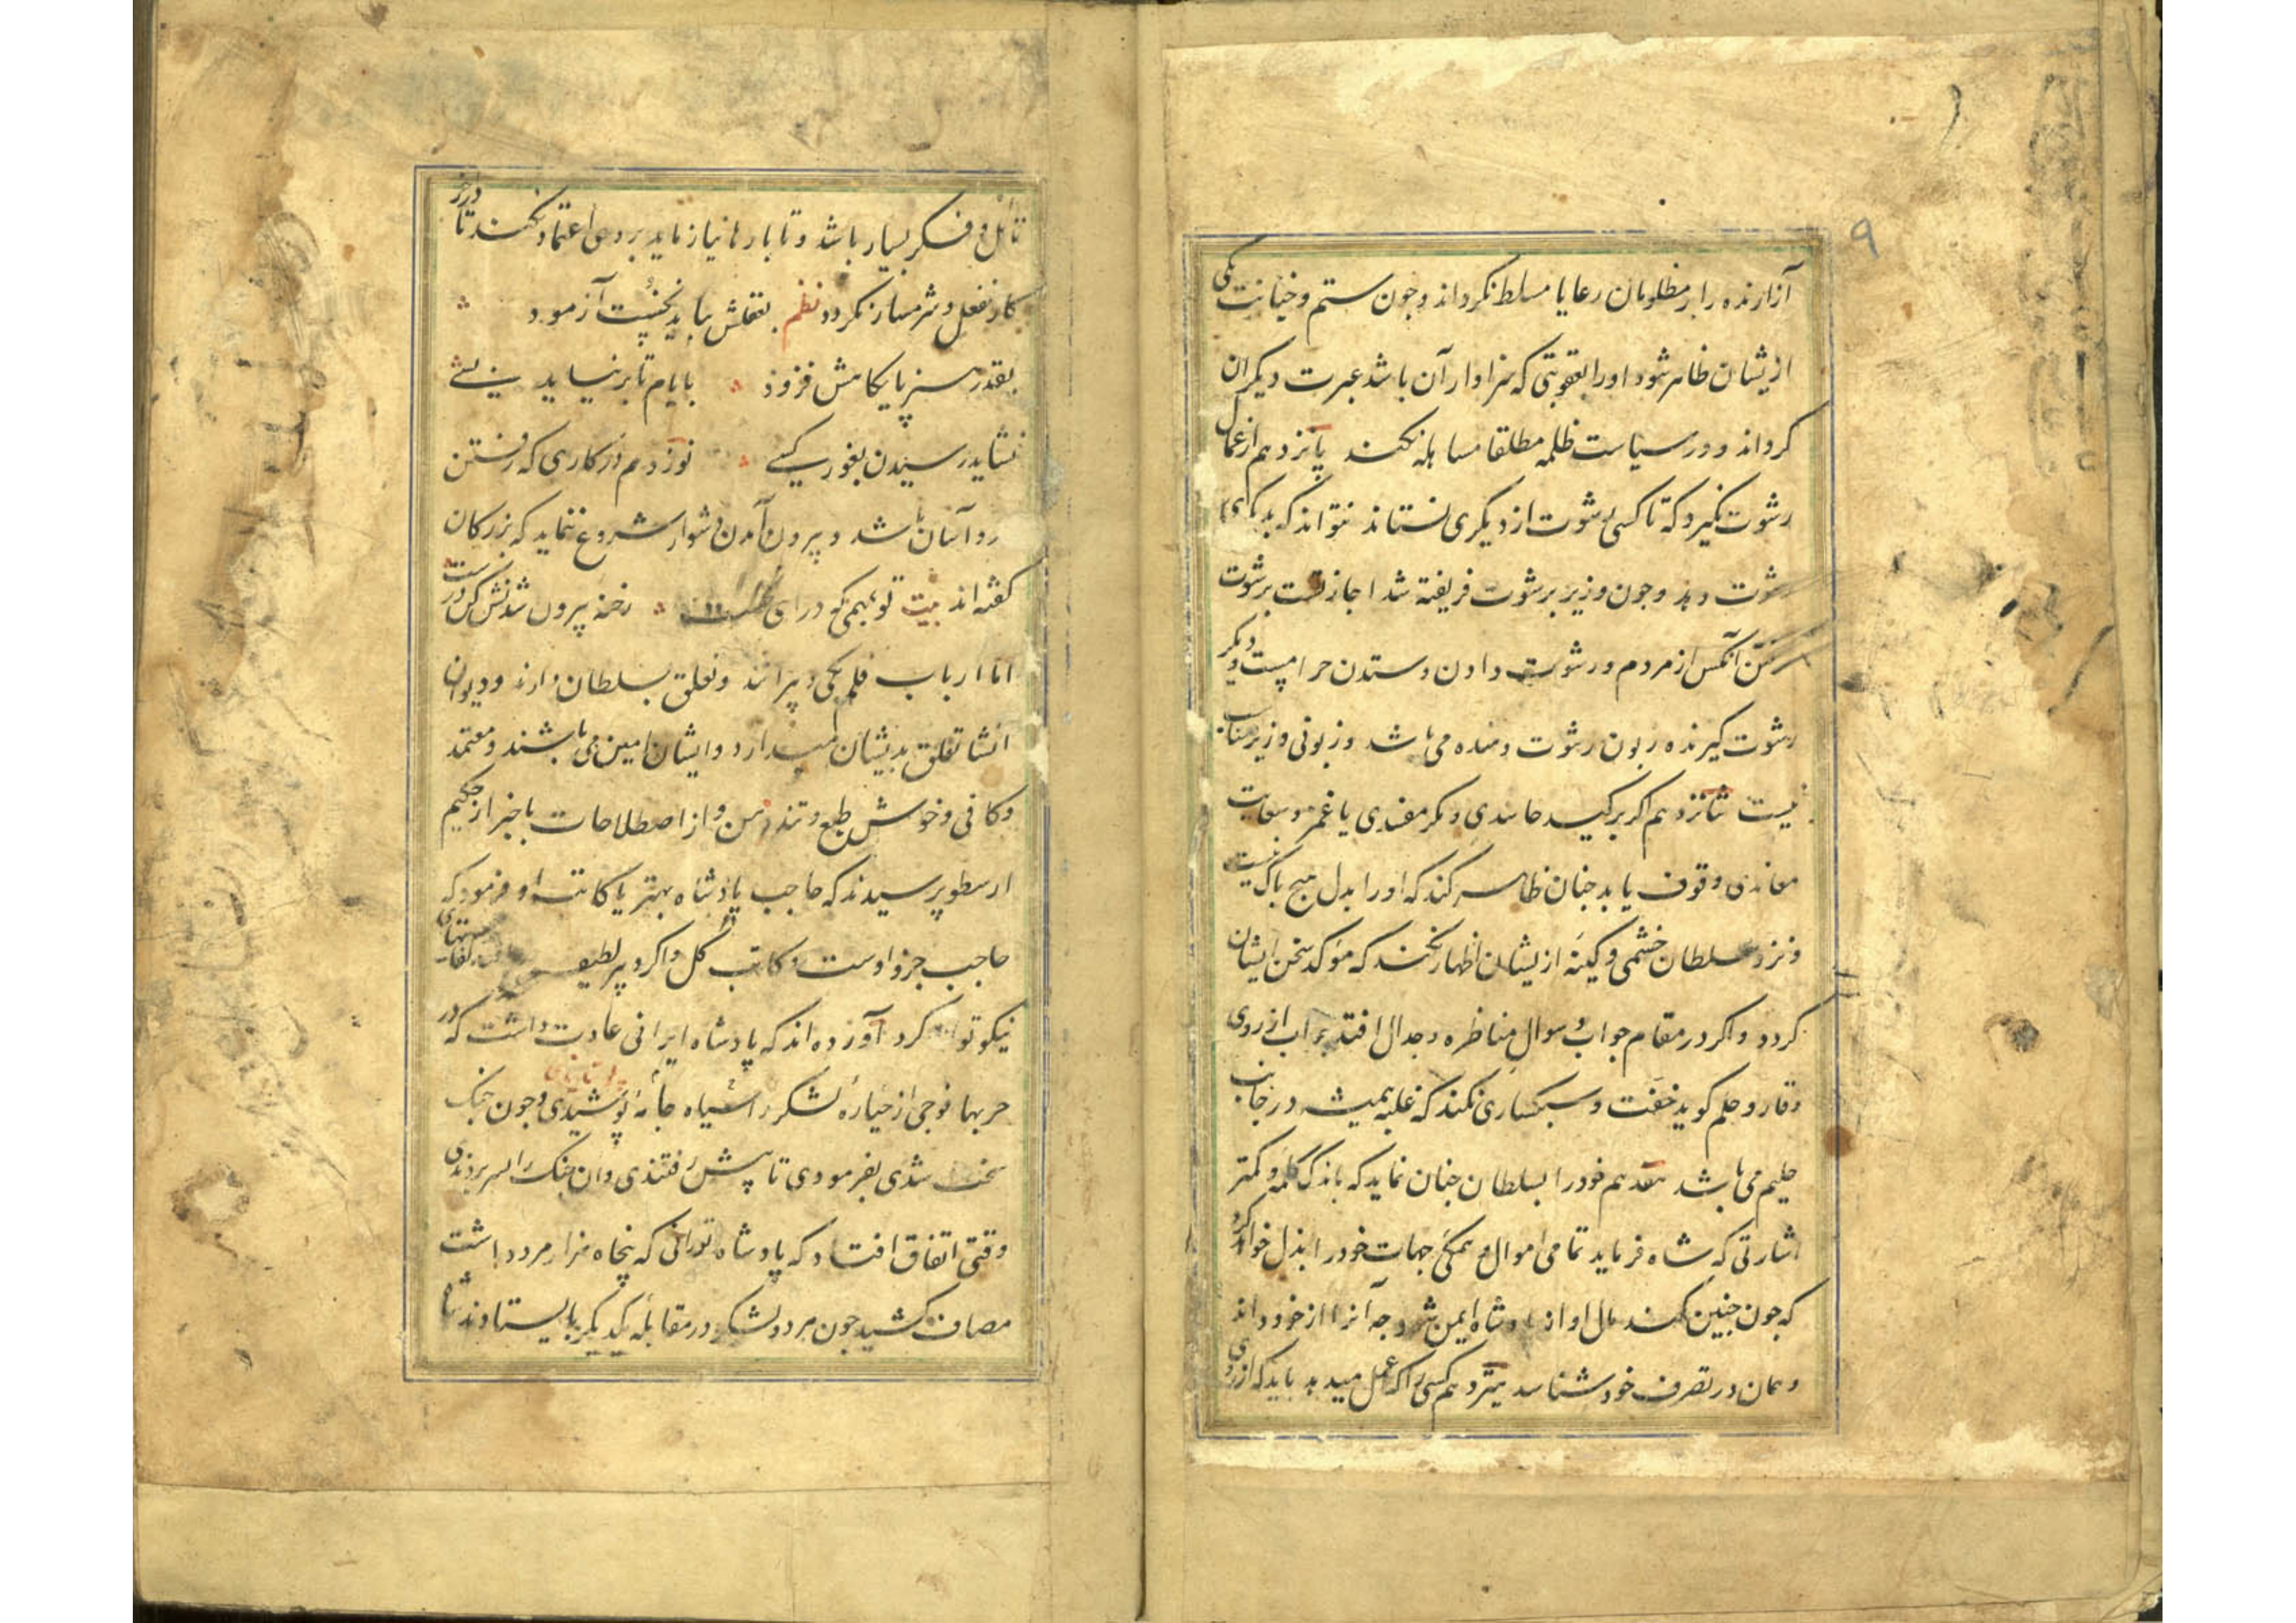 ۹
آزارنده را بر مظلومان رعایا مسلط نکرداند و جون ستم و خیانت یکی
ازیشان ظاهر شود او را بعقوبتی که سزاوار آن باشد عبرت دیکران
کرداند و در سیاست ظلمه مطلقا مساهله نکند پانزدهم از عمال
رشوت نکیرد که تا کسی رشوت از دیکری نستاند نتواند که بدیکری
رشوت دهد و جون وزیر برشوت فریفته شد اجازتست برشوت
کرفتن آنکس از مردم و رشوت دادن و ستدن حرامیست و دیکر
رشوت کیرنده زبون رشوت دهنده می باشد و زبونی وزیر مناسب
نیست شانزدهم اکر بر کید حاسدی و مکر مفسدی یا غمز و سعایت
معاندی وقوف یابد جنان ظاهر کند که او را بدل هیج باک نیست
و نزد سلطان خشمی و کینه ازیشان اظهار نکند که موکد سخن ایشان
کردد و اکر در مقام جواب و سوال مناظره و جدال افتد جواب از روی
وقار و حلم کوید خفت و سبکساری نکند که غلبه همیشه در جانب
حلیم می باشد هفدهم خود را بسلطان جنان نماید که باندک کلمه و کمتر
اشارتی که شاه فرماید تمامی اموال و همکی جهات خود را بذل خواهد کرد
که جون جنین کند مال او از پادشاه ایمن شود جه آنرا از خود داند
و همان در تصرف خود شناسد هیژدهم کسی را که عمل میدهد باید که از روی
تامل و فکر بسیار باشد و تا بارها نیازماید بر وی اعتماد نکند تا در آخر
کار منفعل و شرمسار نکردد نظم بعقلش بباید نخست آزمود
بقدر هنر پایکاهش فزود بایام تا بر نیاید بسی
نشاید رسیدن بغور کسی نوزدهم در کاری که رفتن
رو آسان باشد و بیرون آمدن دشوار شروع ننماید که بزرکان
کفته اند بیت تو بهمی که درای نخست رخنه بیرون شدنش کن درست
اما ارباب قلم یکی دبیرانند و تعلق بسلطان دارند و دیوان
انشا تعلق بدیشان میدارد و ایشان امین می باشند و معتمد
و کافی و خوش طبع و تند ذهن و از اصطلاحات باخبر از حکیم
ارسطو پرسیدند که حاجب پادشاه بهتر یا کاتب او فرمود که
حاجب جزو اوست و کاتب کل و اکر دبیر لطیف
نیکو تواند کرد آورده اند که پادشاه ایرانی عادت داشت که در
حربها فوجی از خیاره لشکر را سیاه جامه پوشیدی و جون جنک
سخت شدی بفرمودی تا پیش رفتندی و آن جنک را بسر بردندی
وقتی اتفاق افتاد که پادشاه تورانی که پنجاه هزار مرد داشت
مصاف کشید جون هر دو لشکر در مقابله یکدیکر بایستادند شاه